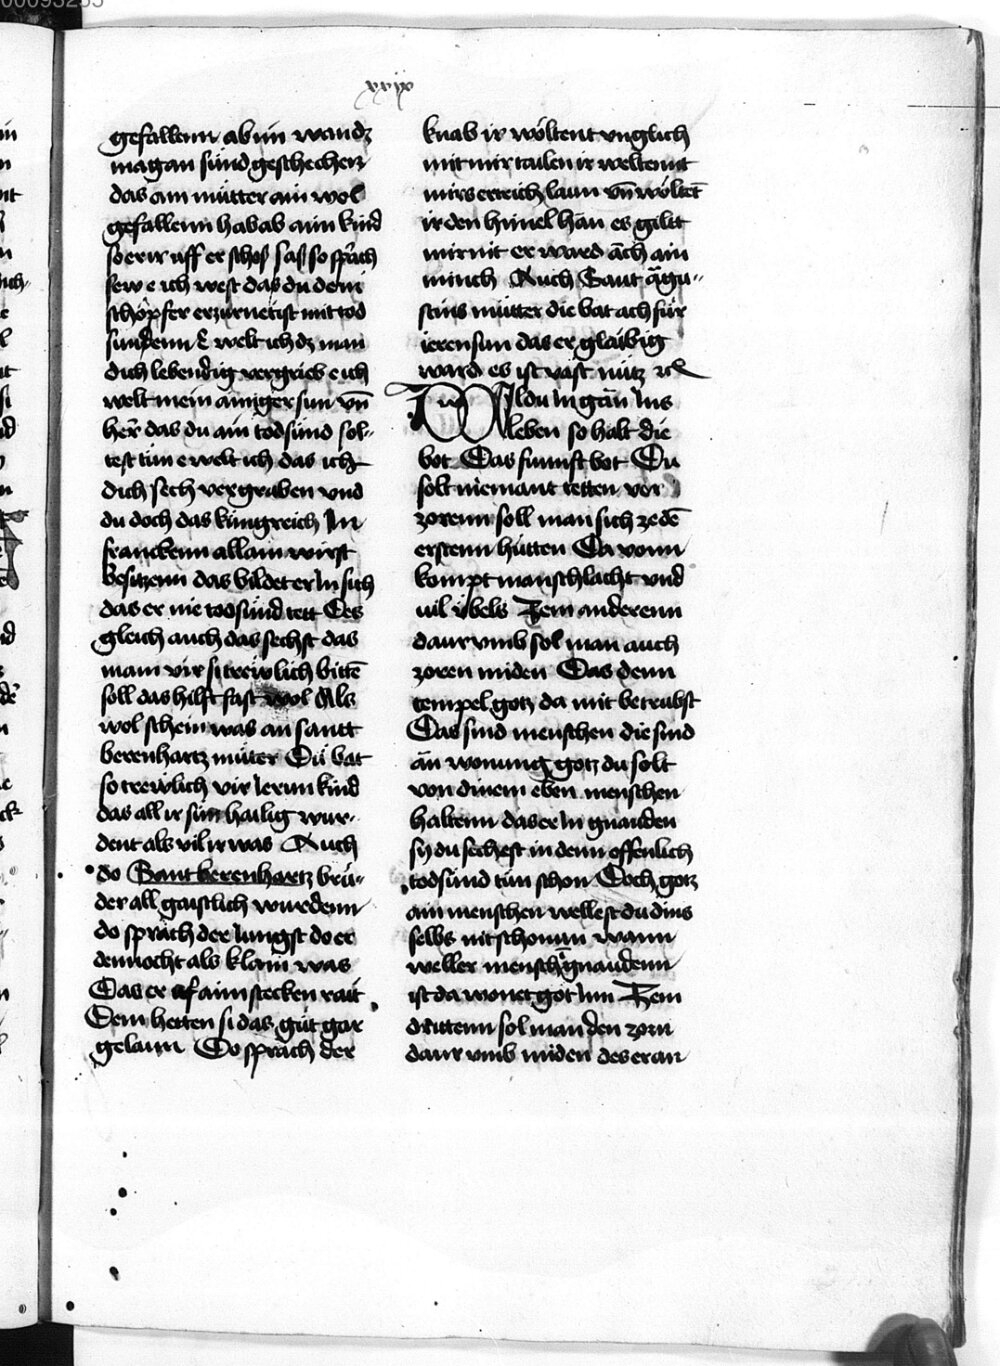 xxix
gefallenn ab im wandz
magan sünd geschechen
das ain mütter ain wol
gefallenn hab ab aim kind
so er ir uff er schoß saß so sprach
sew e ich west das du dem
schöpfer erzurnetist mit tod
sundenn E welt ich dz man
dich lebendig vergrieb e ich
welt mein ainiger sun vn̄
her̄ das du ain todsünd sol-
test tün e welt ich das ich
dich sech vergraben vnd
du doch das küngreich In
franckenn allain wirst
besitzenn das bildet er In sich
das er nie todsünd tett Des
gleich auch das sechst das
mam vir si trewlich bittē
soll das hilft fast wol Als
wol schein was an santt
berenhartz müter Dü bat
so trewlich vir Ierun kind
das all ir sün hailig wur-
dent als vil ir was Auch
do Sant berenhartz brü-
der all gaistlich wurdenn
do sprach der Iungst do er
dennocht als klain was
Das er uf aim stecken rait
Dem hetten si das güt gar
gelaun Do sprach der
knab ir wöltent vnglich
mit mir tailen ir weltent
mirs erreich laun vn̄ wöltēt
ir den himel han es giltt
mir nit er ward āch ain
münch Auch Sant āgu-
stins mütter die bat ach für
ieren sun das er gläibig
ward es ist vast nütz etc
Wildu In gān Ins
leben so halt die
bot Das funnft bot Du
solt niemant tetten vor
zorenn soll man sich ze dē
erstenn hütten Da vonn
kompt manschlacht vnd
uil übels Zem anderenn
daur vmb sol man auch
zoren miden Das denn
tempel gotz da mit betrübst
Das sind menschen die sind
ān wonung gotz du solt
von dinem eben menschen
haltenn das er In gnauden
sy du sechest in denn offenlich
todsünd tün schon Doch gotz
ain menschen wellest du dins
selbs nit schonnn wann
weller mensch In gnaudenn
ist da wonet got Inn Zem
drittenn sol man den zorn
daur vmb miden des er an